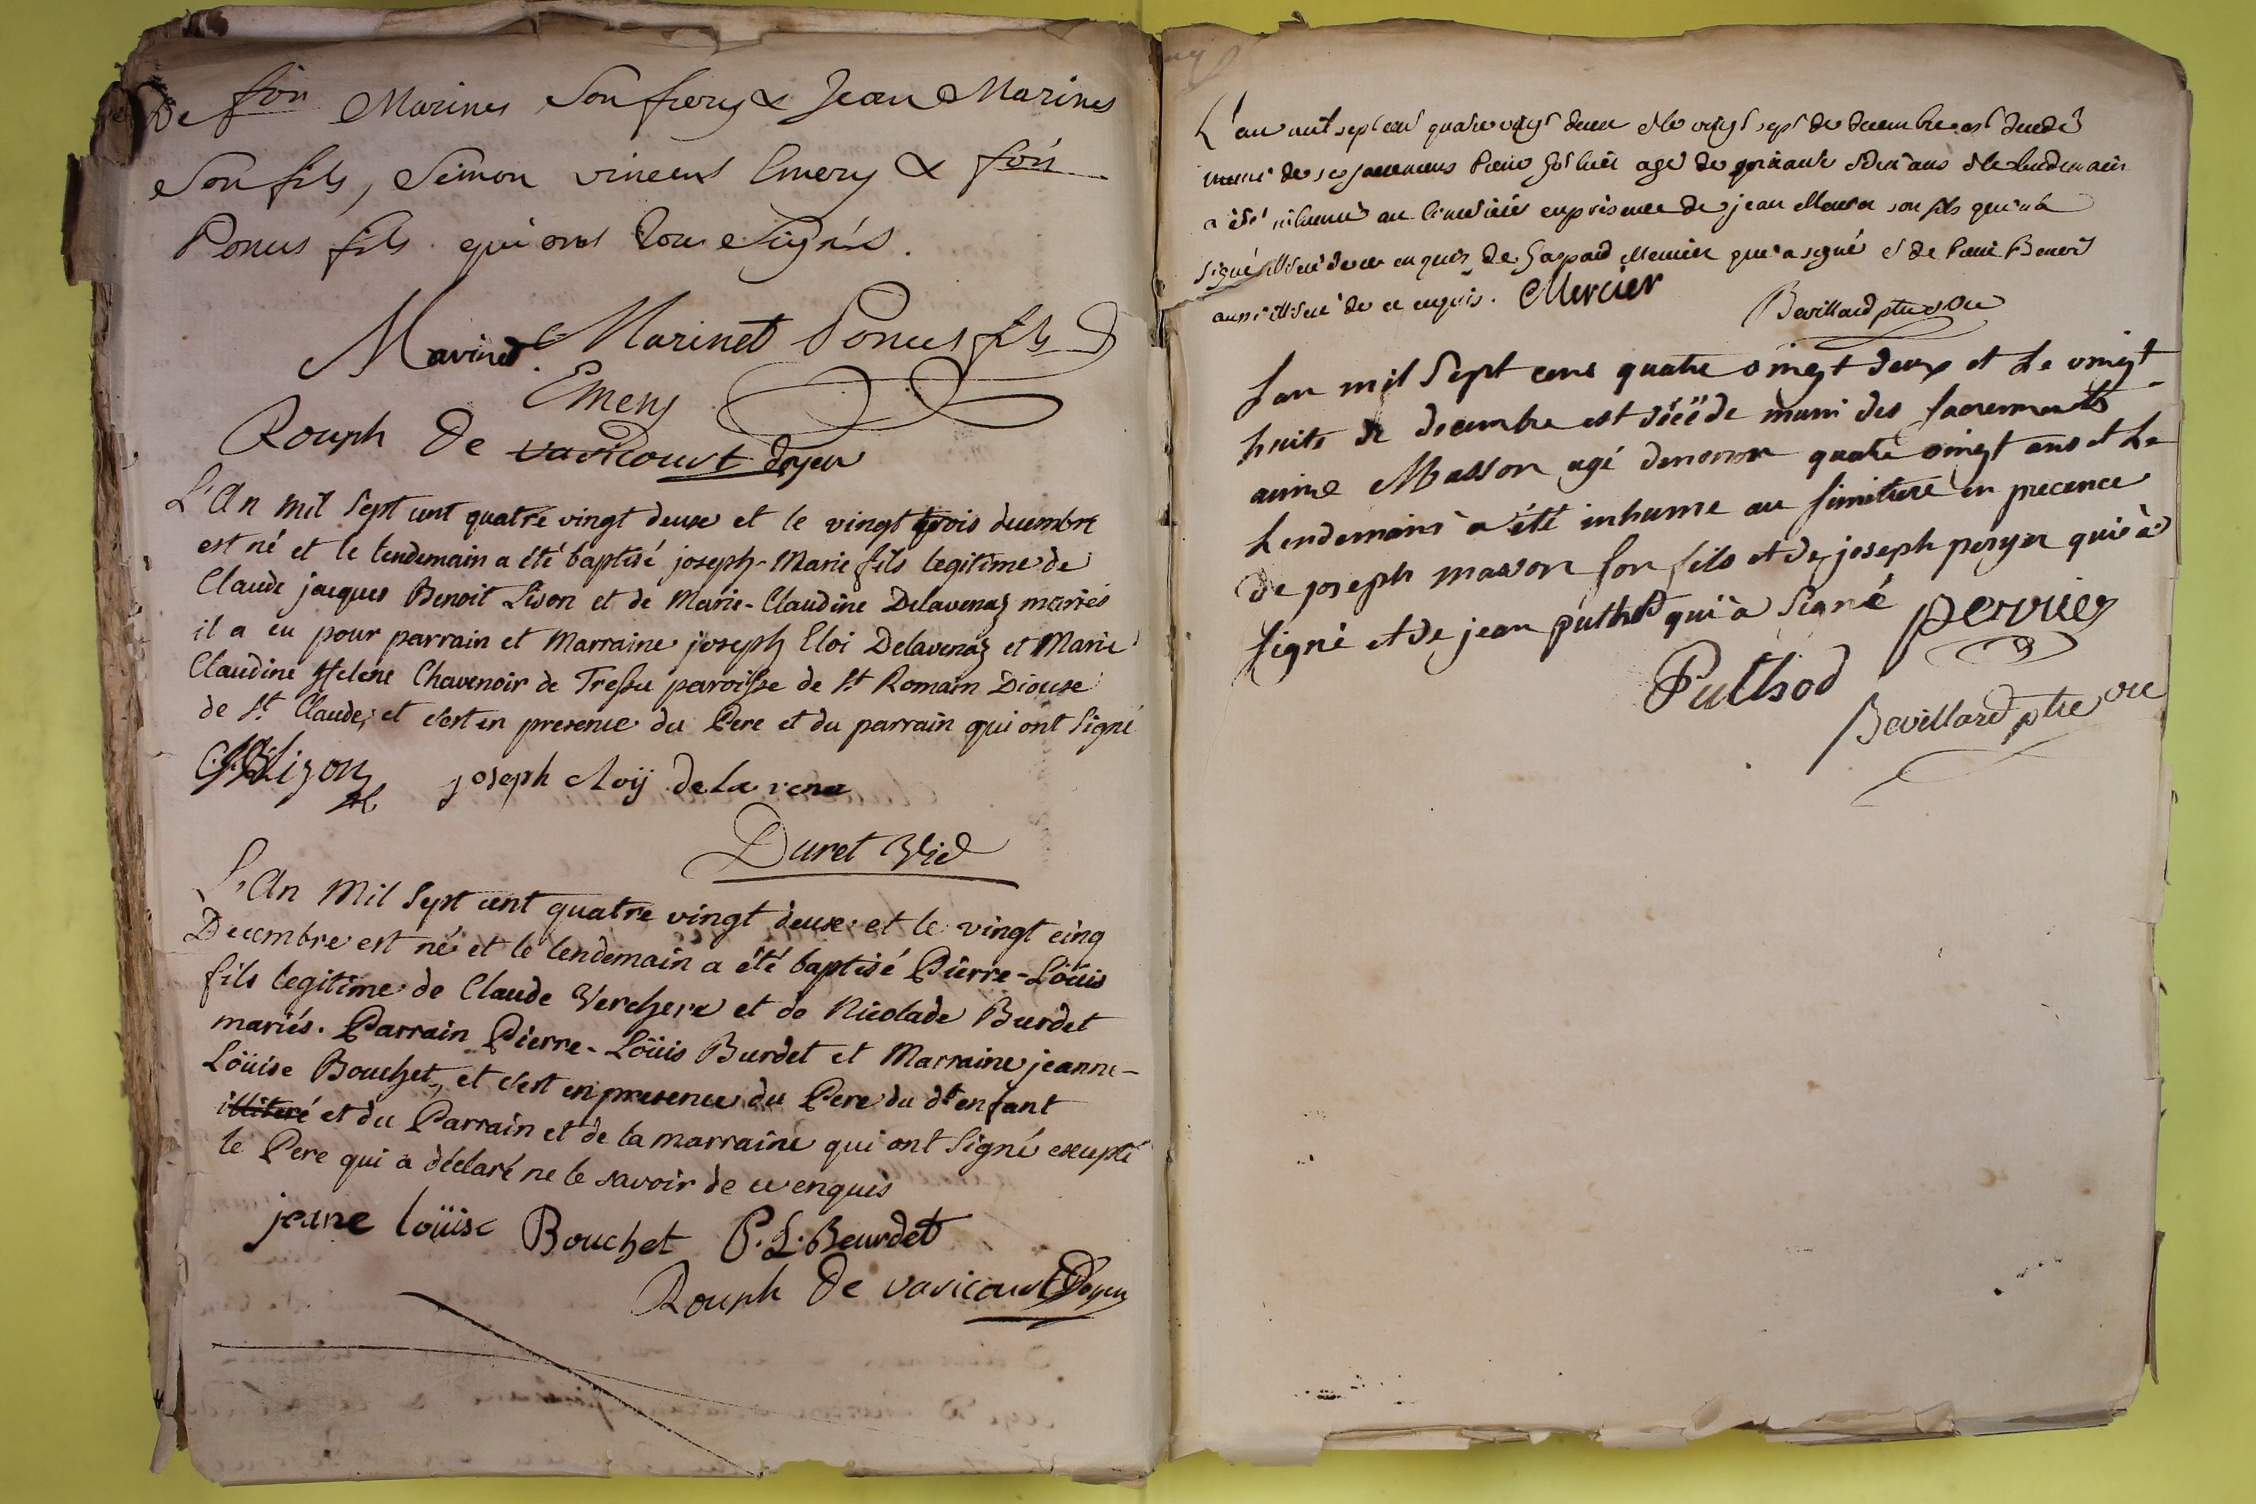 De fon Marines Son frere & Jean Marines
Son fils, Simon vincent Emery & fon
Ponus fils qui ont tou Signés.
Marinet Marinet Ponus fils
Emery
Rouph De varicourt doyen
L'An mil Sept cent quatre vingt deux et le vingt trois decembre
est né et le lendemain a été baptisé joseph-Marie fils legitime de
Claude jacques Benoit Lison et de Marie-Claudine Delavenaz mariés
il a eu pour parrain et Marraine joseph Eloi Delavenaz et Marie
Claudine Helene Chavenoir de Tressu paroisse de St Romain Diouse
de St Claude, et c'est en presence du Pere et du parrain qui ont Signé
C.J.B. Lizon joseph eloÿ dela vena
Duret Vic
L'An Mil Sept cent quatre vingt deux et le vingt cinq
Decembre est né et le lendemain a été baptisé Pierre-Loüis
fils legitime de Claude Verchere et de Nicolade Burdet
mariés. Parrain Pierre-Loüis Burdet et Marraine jeanne-
Loüise Bouchet, et c'est en presence du Pere du dt enfant
illiteré et du Parrain et de la marraine qui ont Signé excepté
le Pere qui a déclaré ne le savoir de ce enquis
jeane loüise Bouchet P. L. Beurdet
Rouph De varicourt Doyen
L'an mil sept cent quatre vingt deux et le vingt sept de decembre est decedé
muni de ses sacremens Pierre agé de ans et le lendemain
a été inhumé au cimetiere en presence de jean son fils qui n'a
signé illiteré de ce enquis de Gaspard Mercier qui a signé et de Pierre Benoit
aussi illiteré de ce enquis. Mercier
Bevillard ptre vic
Lan mil Sept cens quatre vingt deux et Le vingt
huits de decembre est décéde muni des Sacrements
aimé Masson agé denviron quatre vingt ans et Le
Lendemains a été inhume au Simitiere en precence
de joseph masson son fils et de joseph peryer qui à
signé et de jean puthod qui à Signé perrier
Puthod
Bevillard ptre vic